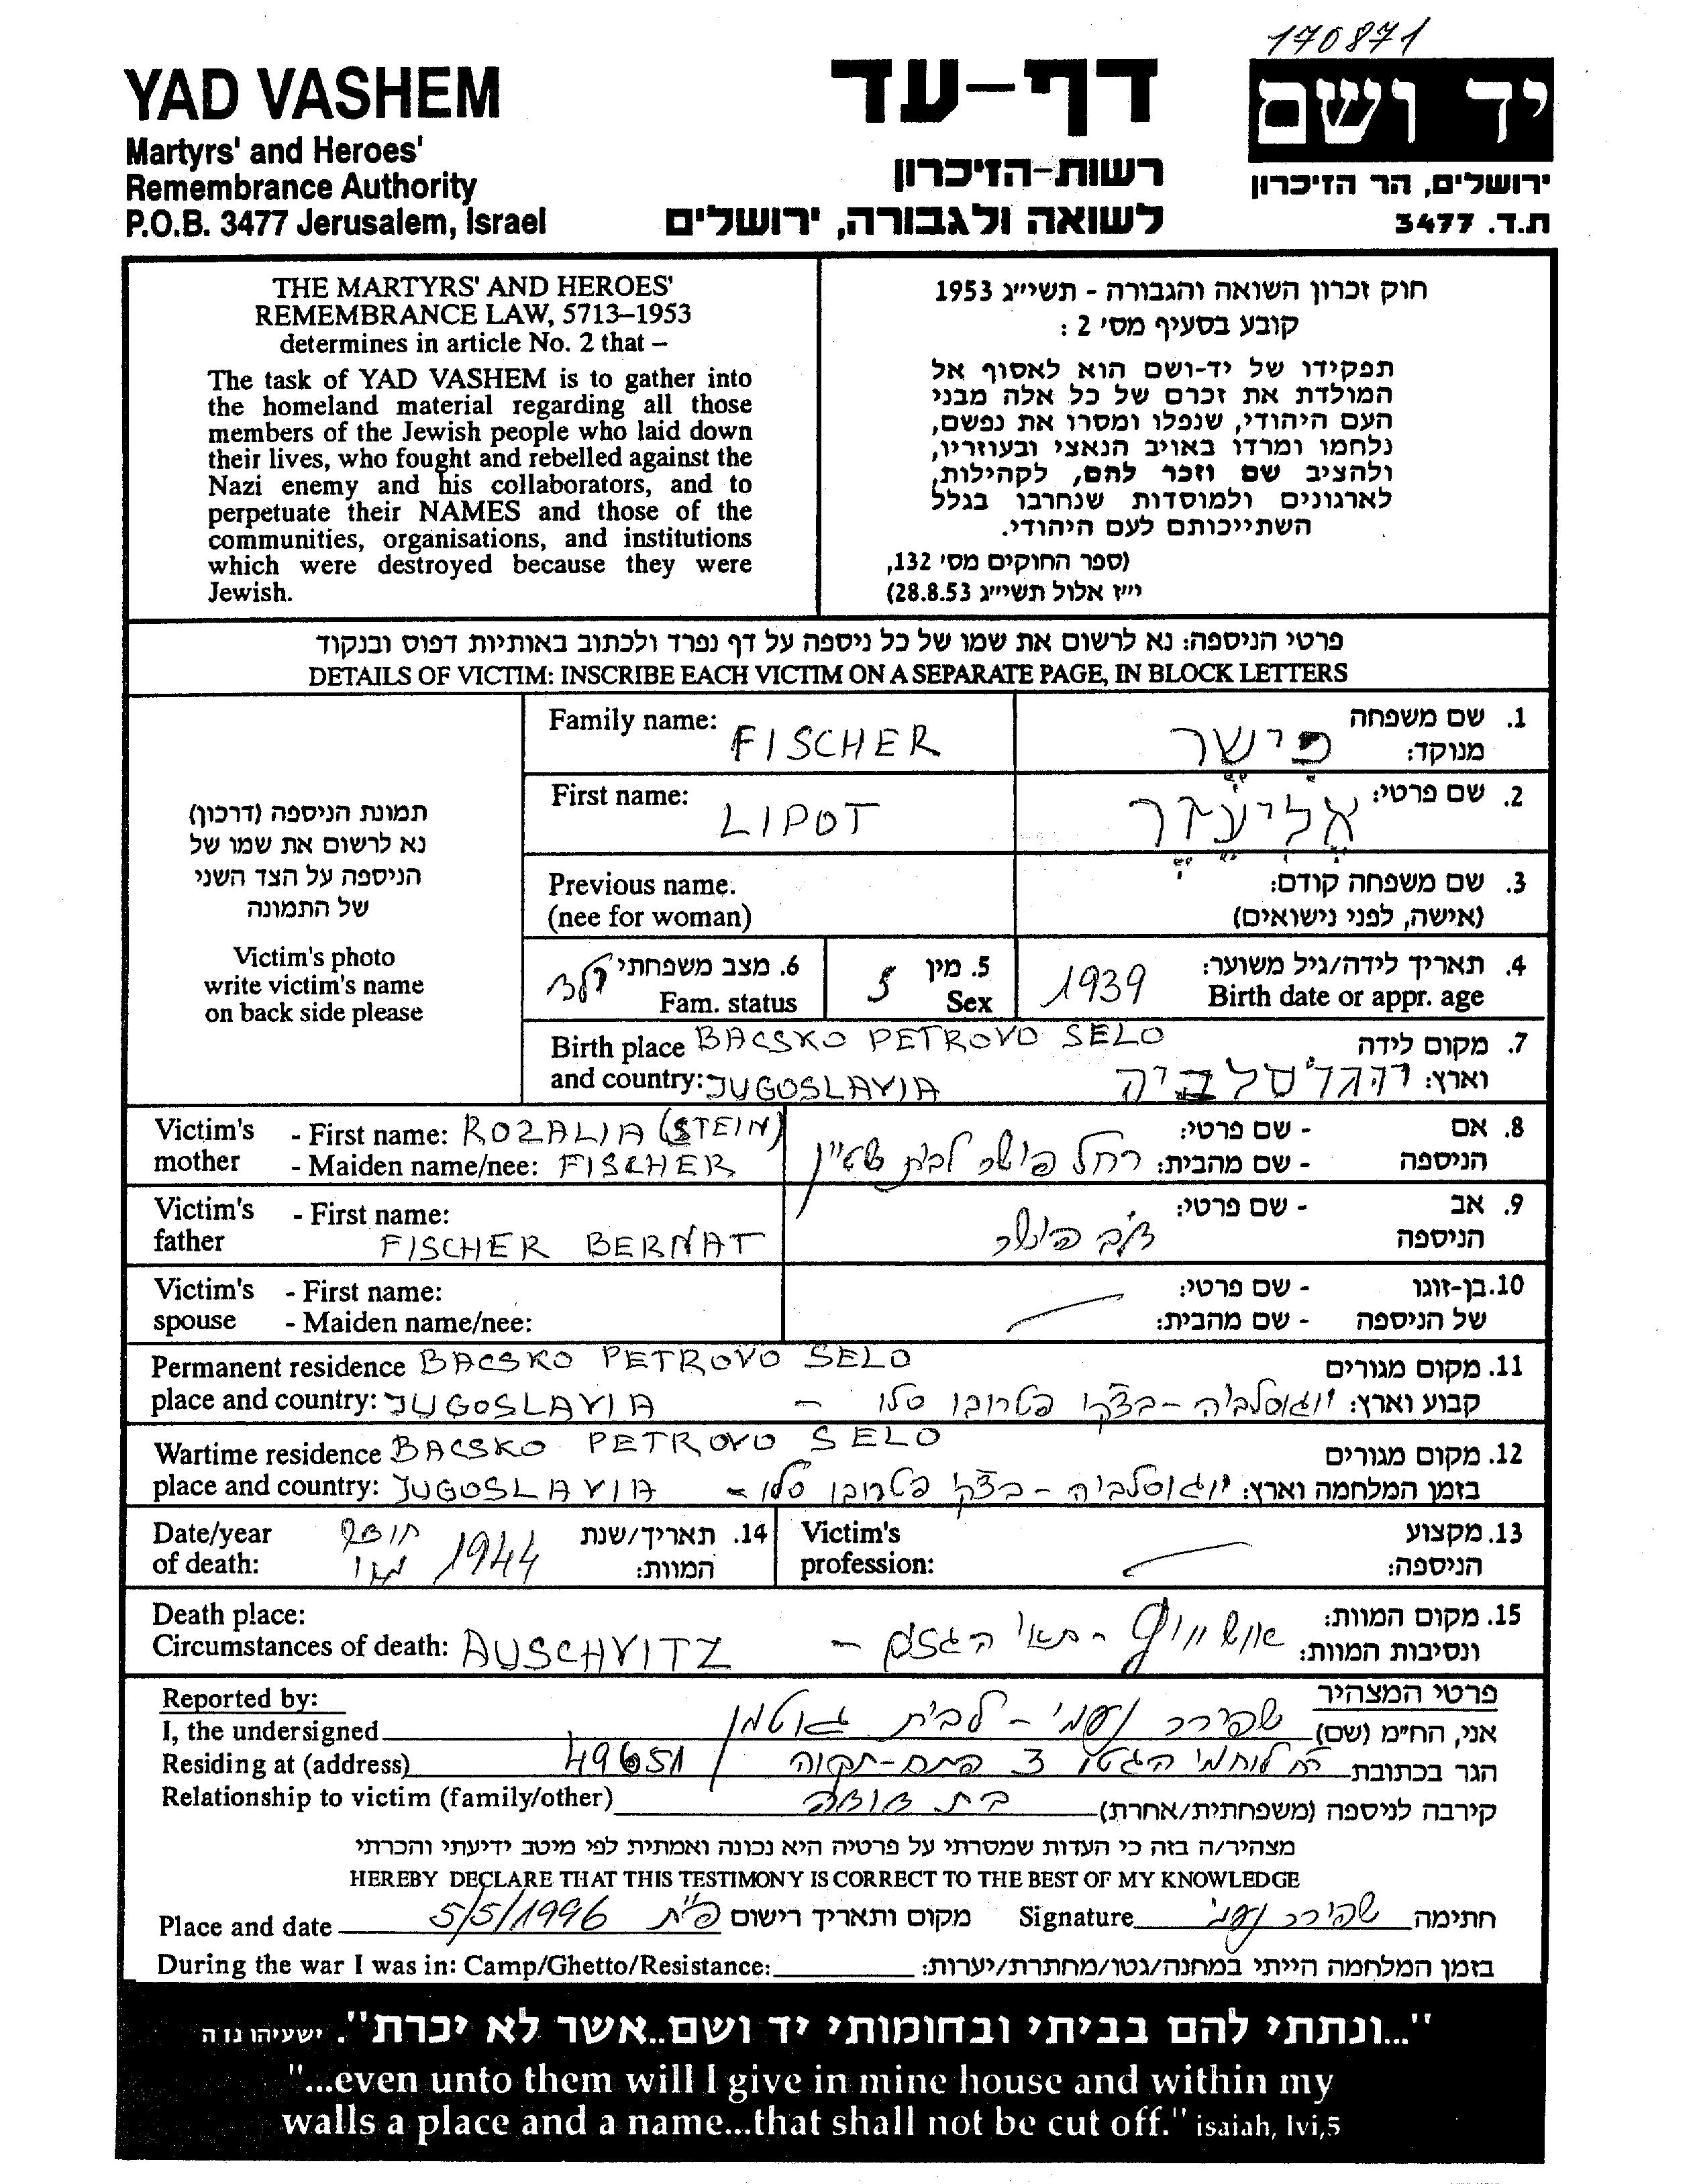 170871
YAD VASHEM
Martyrs' and Heroes'
Remembrance Authority
P.O.B. 3477 Jerusalem, Israel
דף-עד
רשות-הזיכרון
לשואה ולגבורה, ירושלים
יד ושם
ירושלים, הר הזיכרון
ת.ד. 3477
THE MARTYRS' AND HEROES'
REMEMBRANCE LAW, 5713–1953
determines in article No. 2 that –
The task of YAD VASHEM is to gather into
the homeland material regarding all those
members of the Jewish people who laid down
their lives, who fought and rebelled against the
Nazi enemy and his collaborators, and to
perpetuate their NAMES and those of the
communities, organisations, and institutions
which were destroyed because they were
Jewish.
חוק זכרון השואה והגבורה - תשי״ג 1953
קובע בסעיף מס׳ 2 :
תפקידו של יד-ושם הוא לאסוף אל
המולדת את זכרם של כל אלה מבני
העם היהודי, שנפלו ומסרו את נפשם,
נלחמו ומרדו באויב הנאצי ובעוזריו,
ולהציב שם וזכר להם, לקהילות,
לארגונים ולמוסדות שנחרבו בגלל
השתייכותם לעם היהודי.
(ספר החוקים מס׳ 132,
י״ז אלול תשי״ג 28.8.53)
פרטי הניספה: נא לרשום את שמו של כל ניספה על דף נפרד ולכתוב באותיות דפוס ובנקוד
DETAILS OF VICTIM: INSCRIBE EACH VICTIM ON A SEPARATE PAGE, IN BLOCK LETTERS
תמונת הניספה (דרכון)
נא לרשום את שמו של
הניספה על הצד השני
של התמונה
Victim's photo
write victim's name
on back side please
Family name: FISCHER
פישר
1. שם משפחה
מנוקד:
First name: LIPOT
2. שם פרטי: אליעזר
Previous name.
(nee for woman)
3. שם משפחה קודם:
(אישה, לפני נישואים)
4. תאריך לידה/גיל משוער:
Birth date or appr. age
1939
5. מין
Sex
ז
6. מצב משפחתי
Fam. status
ילד
Birth place BACSKO PETROVO SELO
and country: JUGOSLAVIA
7. מקום לידה
וארץ: יוגוסלביה
Victim's mother
- First name: ROZALIA (STEIN)
- Maiden name/nee: FISCHER
8. אם הניספה
- שם פרטי:
- שם מהבית: רחל פישר לבית שטיין
Victim's father
- First name:
FISCHER BERNAT
9. אב הניספה
- שם פרטי:
דב פישר
Victim's spouse
- First name:
- Maiden name/nee:
10. בן-זוגו של הניספה
- שם פרטי:
- שם מהבית:
Permanent residence BACSKO PETROVO SELO
place and country: JUGOSLAVIA
11. מקום מגורים
קבוע וארץ: יוגוסלביה - בצקו פטרובו סלו -
Wartime residence BACSKO PETROVO SELO
place and country: JUGOSLAVIA
12. מקום מגורים
בזמן המלחמה וארץ: יוגוסלביה - בצקו פטרובו סלו -
Date/year
of death:
חודש
מאי 1944
14. תאריך/שנת
המוות:
Victim's
profession:
13. מקצוע
הניספה:
Death place:
Circumstances of death: AUSCHVITZ
15. מקום המוות:
ונסיבות המוות: אושוויץ - תאי הגזים -
Reported by:
פרטי המצהיר
I, the undersigned
אני, הח״מ (שם) שפירר נעמי - לבית גוטמן
Residing at (address)
הגר בכתובת רח' לוחמי הגטו 3 פתח-תקוה 49651
Relationship to victim (family/other)
קירבה לניספה (משפחתית/אחרת) בת דודה
מצהיר/ה בזה כי העדות שמסרתי על פרטיה היא נכונה ואמתית לפי מיטב ידיעתי והכרתי
HEREBY DECLARE THAT THIS TESTIMONY IS CORRECT TO THE BEST OF MY KNOWLEDGE
Place and date 5/5/1996 פ״ת מקום ותאריך רישום
Signature שפירר נעמי חתימה
During the war I was in: Camp/Ghetto/Resistance:
בזמן המלחמה הייתי במחנה/גטו/מחתרת/יערות:
"...ונתתי להם בביתי ובחומותי יד ושם..אשר לא יכרת". ישעיהו נו ה
"...even unto them will I give in mine house and within my
walls a place and a name...that shall not be cut off." isaiah, lvi,5